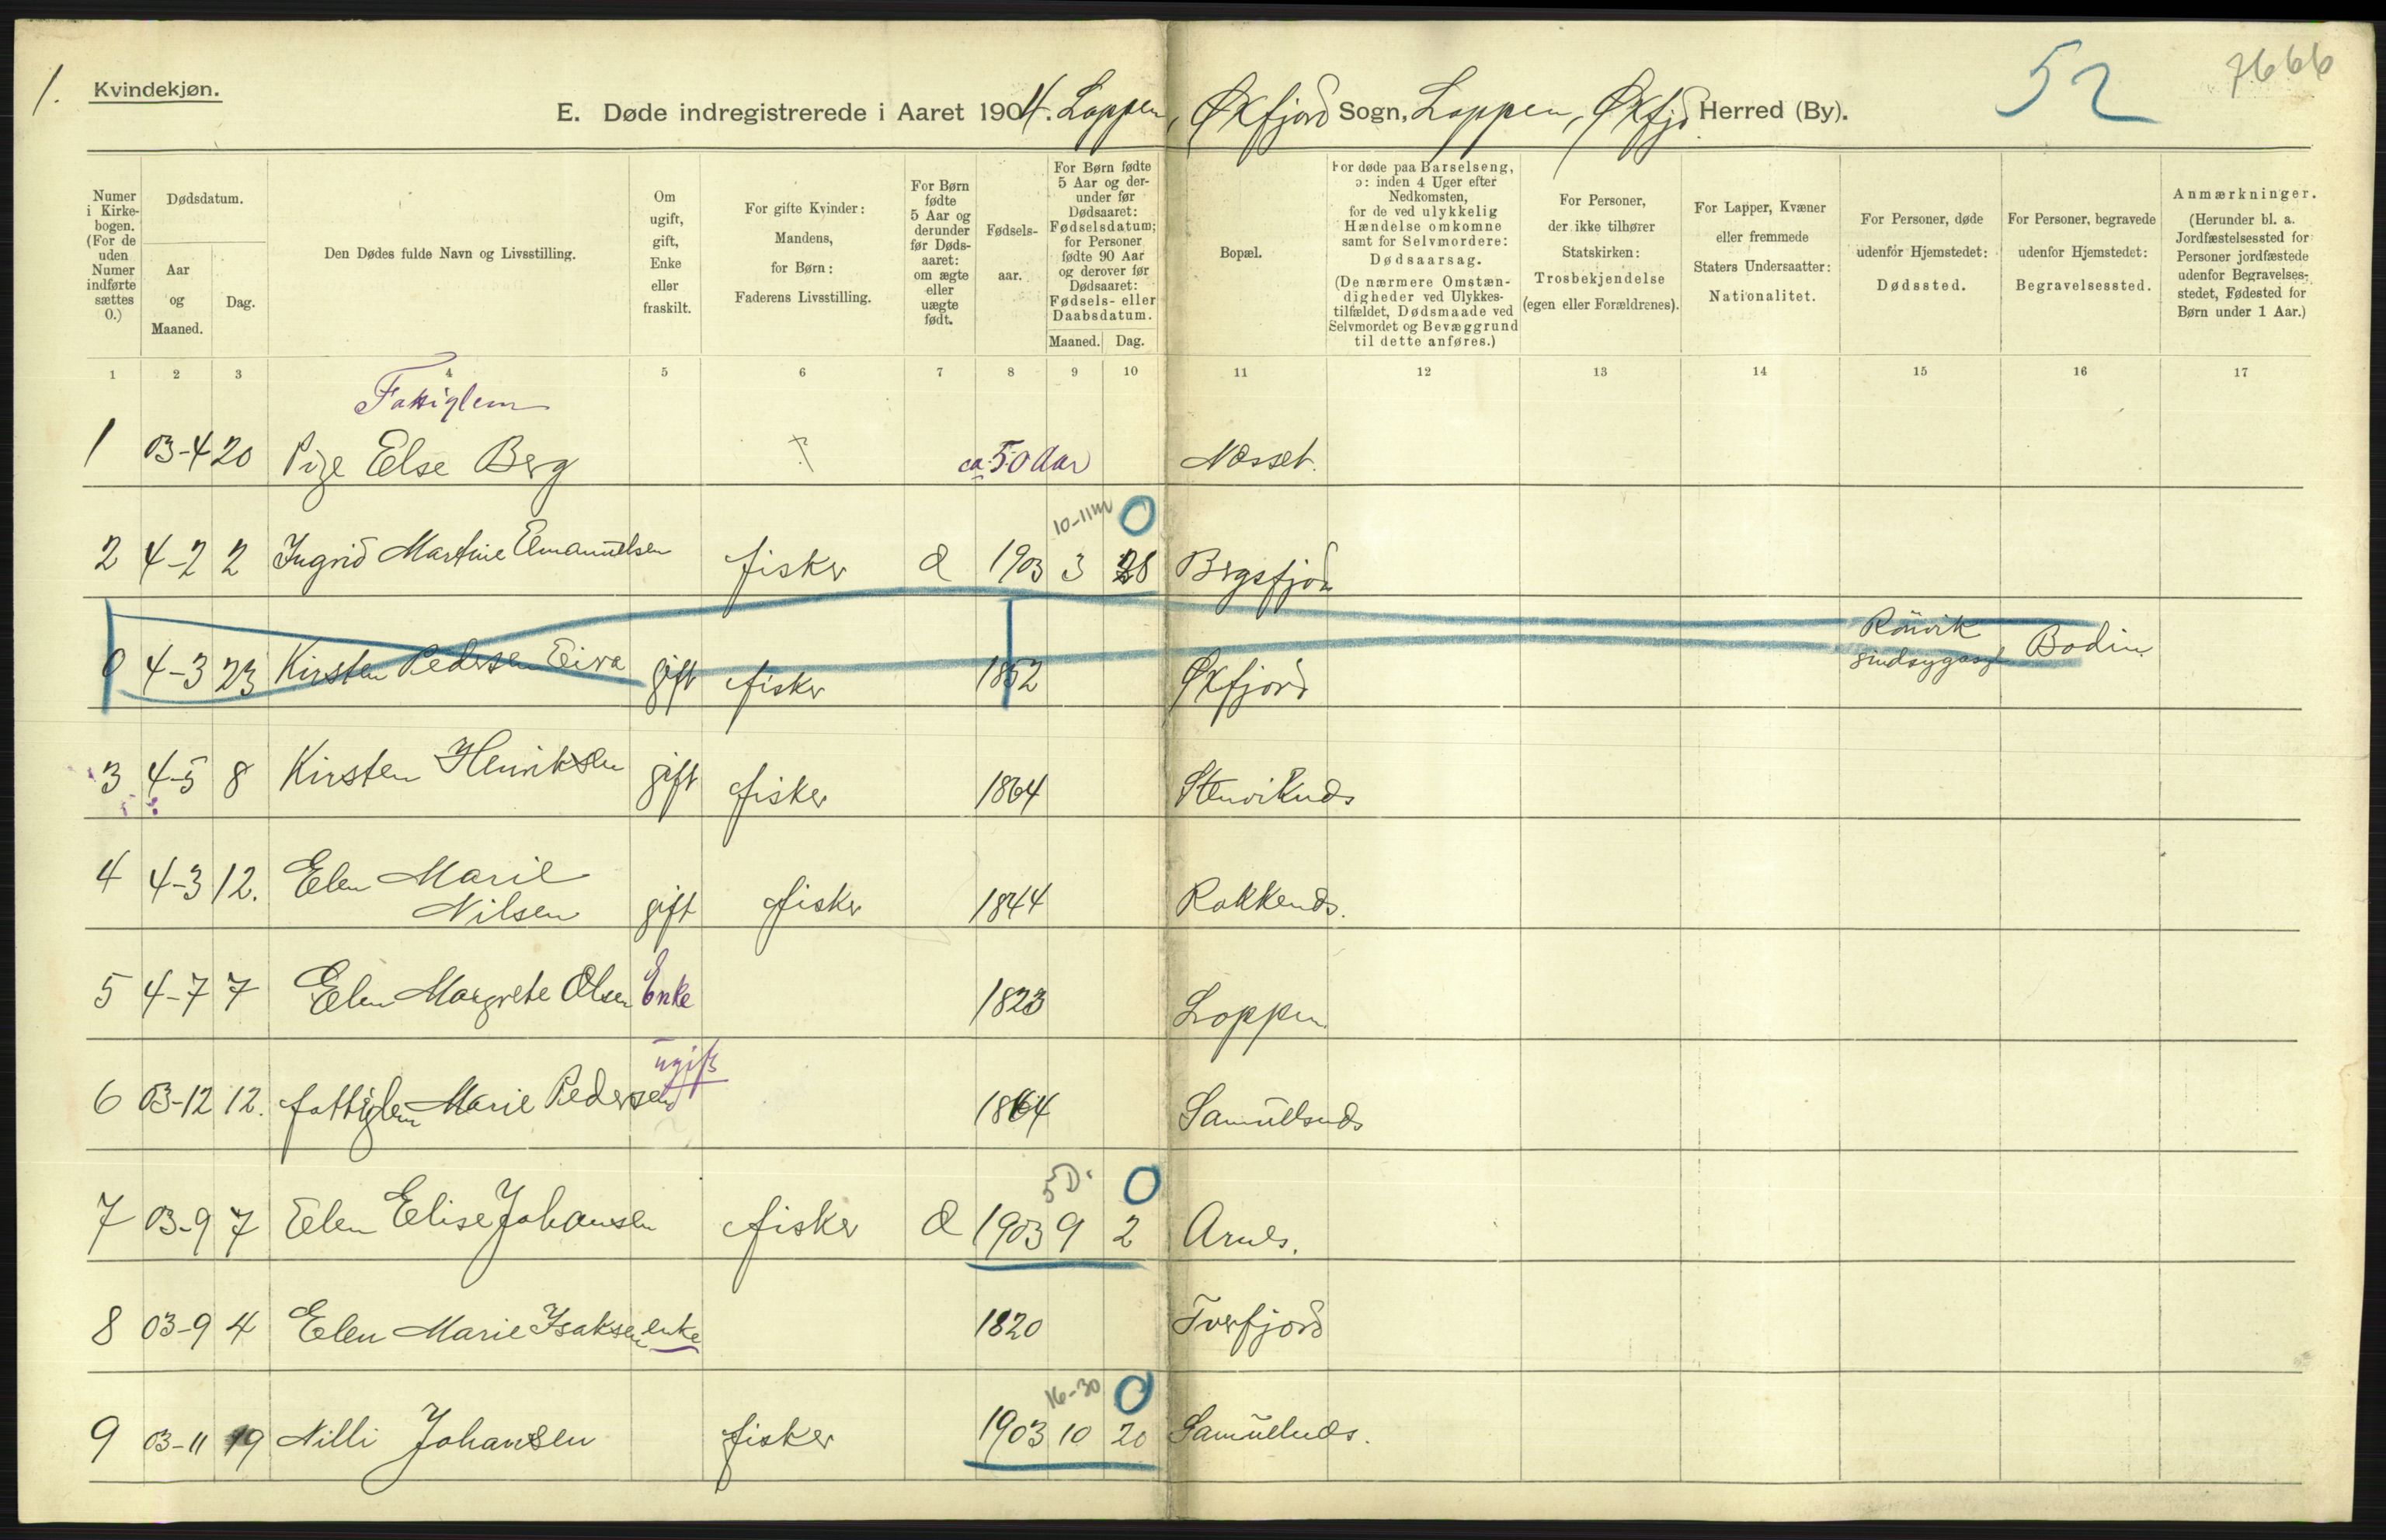 1.
Kvindekjøn.
E. Døde indregistrerede i Aaret 1904. Loppen, Øksfjord Sogn, Loppen, Øksfjd Herred (By).
52
7666
Numer i Kirkebogen. (For de uden Numer indførte sættes 0.)
Dødsdatum.
Aar og Maaned.
Dag.
Den Dødes fulde Navn og Livsstilling.
Om ugift, gift, Enke eller fraskilt.
For gifte Kvinder: Mandens, for Børn: Faderens Livsstilling.
For Børn fødte 5 Aar og derunder før Dødsaaret: om ægte eller uægte født.
Fødselsaar.
For Børn fødte 5 Aar og derunder før Dødsaaret: Fødselsdatum; for Personer fødte 90 Aar og derover før Dødsaaret: Fødsels- eller Daabsdatum.
Maaned. Dag.
Bopæl.
For døde paa Barselseng, ɔ: inden 4 Uger efter Nedkomsten, for de ved ulykkelig Hændelse omkomne samt for Selvmordere: Dødsaarsag.
(De nærmere Omstændigheder ved Ulykkestilfældet, Dødsmaade ved Selvmordet og Bevæggrund til dette anføres.)
For Personer, der ikke tilhører Statskirken: Trosbekjendelse (egen eller Forældrenes).
For Lapper, Kvæner eller fremmede Staters Undersaatter: Nationalitet.
For Personer, døde udenfor Hjemstedet: Dødssted.
For Personer, begravede udenfor Hjemstedet: Begravelsessted.
Anmærkninger.
(Herunder bl. a. Jordfæstelsessted for Personer jordfæstede udenfor Begravelsesstedet, Fødested for Børn under 1 Aar.)
1 2 3 4 5 6 7 8 9 10 11 12 13 14 15 16 17
Fattiglem
1 03-4 20 Pige Else Berg ? ca. 50 Aar Næsset.
10-11 m 0
2 4-2 2 Ingrid Martine Emanuelsen fisker Æ 1903 3 28 Bergsfjord
0 4-3 23 Kirsten Pedersen Eira gift fisker 1852 Øksfjord Rönvik sindsygeasyl Bodin
3 4-5 8 Kirsten Henriksen gift fisker 1864
4 4-3 12. Elen Marie Nilsen gift fisker 1844
5 4-7 7 Elen Margrete Olsen Enke 1823 Loppen
ugift
6 03-12 12. fattiglem Marie Pedersen 1864
5 D. 0
7 03-9 7 Elen Elise Johansen fisker Æ 1903 9 2 Arnes.
8 03-9 4 Elen Marie Isaksen enke 1820 Tverfjord
16-30 0
9 03-11 19 Nilli Johansen fisker 1903 10 20